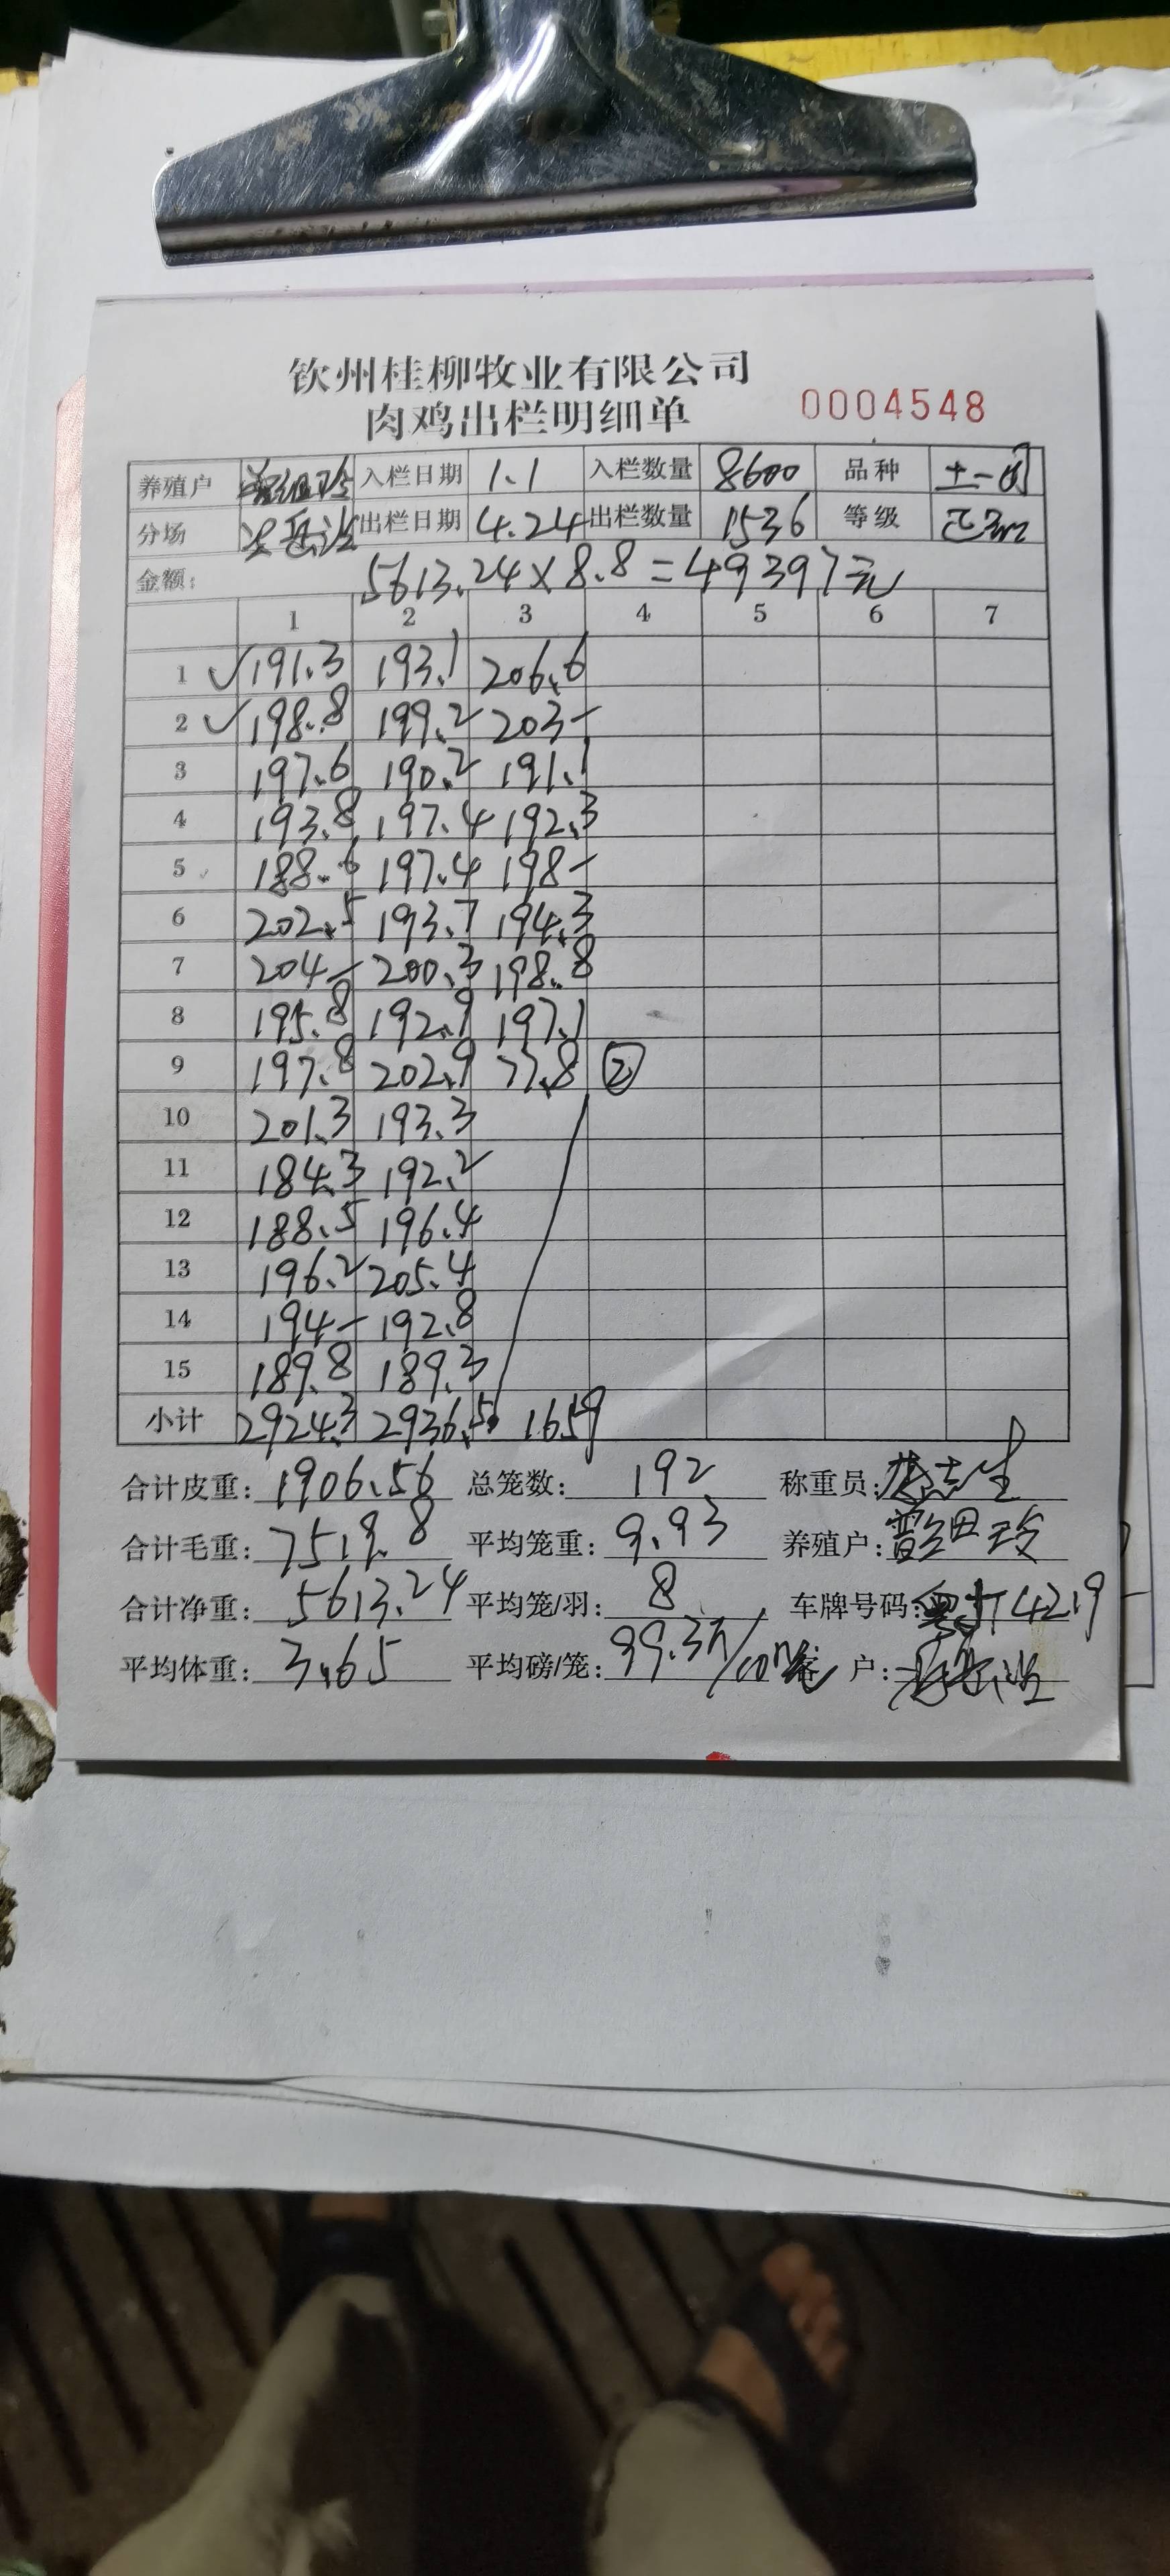 钦州桂柳牧业有限公司
肉鸡出栏明细单 0004548
养殖户 入栏日期 1.1 入栏数量 8600 品种 土一
分场 出栏日期 4.24 出栏数量 1536 等级 正
金额: 5613.24×8.8=49397元
1 2 3 4 5 6 7
1 ✓191.3 193.1 206.6
2 ✓198.8 199.2 203-
3 197.6 190.2 191.1
4 193.8 197.4 192.3
5 188.6 197.4 198-
6 202.5 193.7 194.3
7 204- 200.3 198.8
8 195.8 192.9 197.1
9 197.8 202.9 77.8 ②
10 201.3 193.3
11 184.3 192.2
12 188.5 196.4
13 196.2 205.4
14 194- 192.8
15 189.8 189.3
小计 2924.3 2936.5 1659
合计皮重: 1906.56 总笼数: 192 称重员:
合计毛重: 7519.8 平均笼重: 9.93 养殖户:
合计净重: 5613.24 平均笼/羽: 8 车牌号码: 4219
平均体重: 3.65 平均磅/笼: 99.3元/ 客 户: